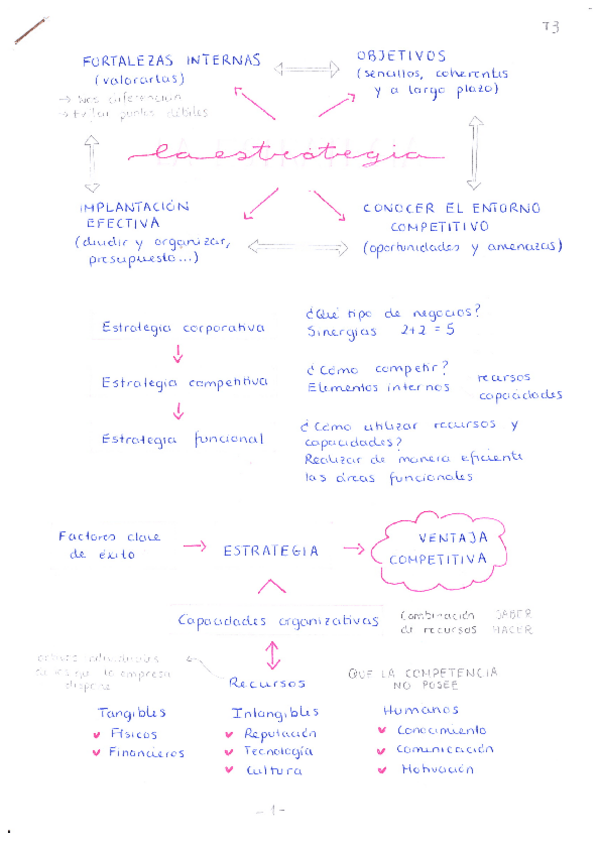 T3
FORTALEZAS INTERNAS
(valorarlas)
→ Nos diferencian
→ Evitar puntos débiles
OBJETIVOS
(sencillos, coherentes
y a largo plazo)
la estrategia
IMPLANTACIÓN
EFECTIVA
(dividir y organizar,
presupuesto...)
CONOCER EL ENTORNO
COMPETITIVO
(oportunidades y amenazas)
Estrategia corporativa
¿Qué tipo de negocios?
Sinergias 2+2 = 5
Estrategia competitiva
¿Cómo competir?
Elementos internos
recursos
capacidades
Estrategia funcional
¿Cómo utilizar recursos y
capacidades?
Realizar de manera eficiente
las áreas funcionales
Factores clave
de éxito
→ ESTRATEGIA →
VENTAJA
COMPETITIVA
Capacidades organizativas
Combinación SABER
de recursos HACER
activos individuales
la empresa
dispone
Recursos
QUE LA COMPETENCIA
NO POSEE
Tangibles
Físicos
Financieros
Intangibles
Reputación
Tecnología
Cultura
Humanos
Conocimiento
Comunicación
Motivación
- 1 -